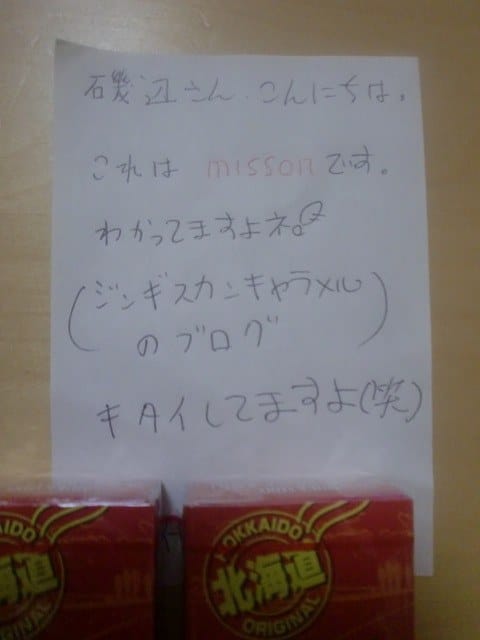 磯辺さん、こんにちは。
これは missonです。
わかってますよネ。
(ジンギスカンキャラメル
のブログ)
キタイしてますよ(笑)
OKKAIDO
北海道
ORIGINAL
HOKKAIDO
北海道
ORIGINAL